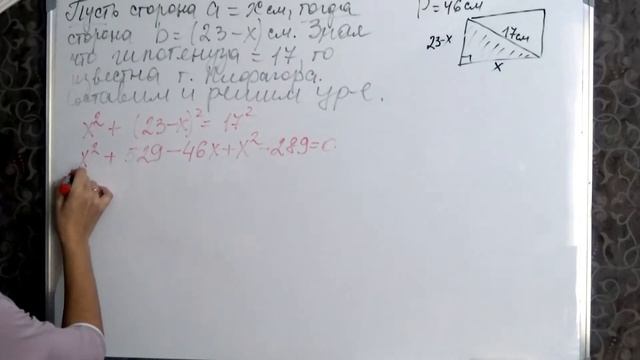 Пусть сторона a = x см, тогда
сторона b = (23-x) см. Зная
что гипотенуза = 17, то
известна т. Пифагора.
Составим и решим ур-е.
x² + (23-x)² = 17²
x² + 529 - 46x + x² - 289 = 0
P = 46 см
23-x
17см
x